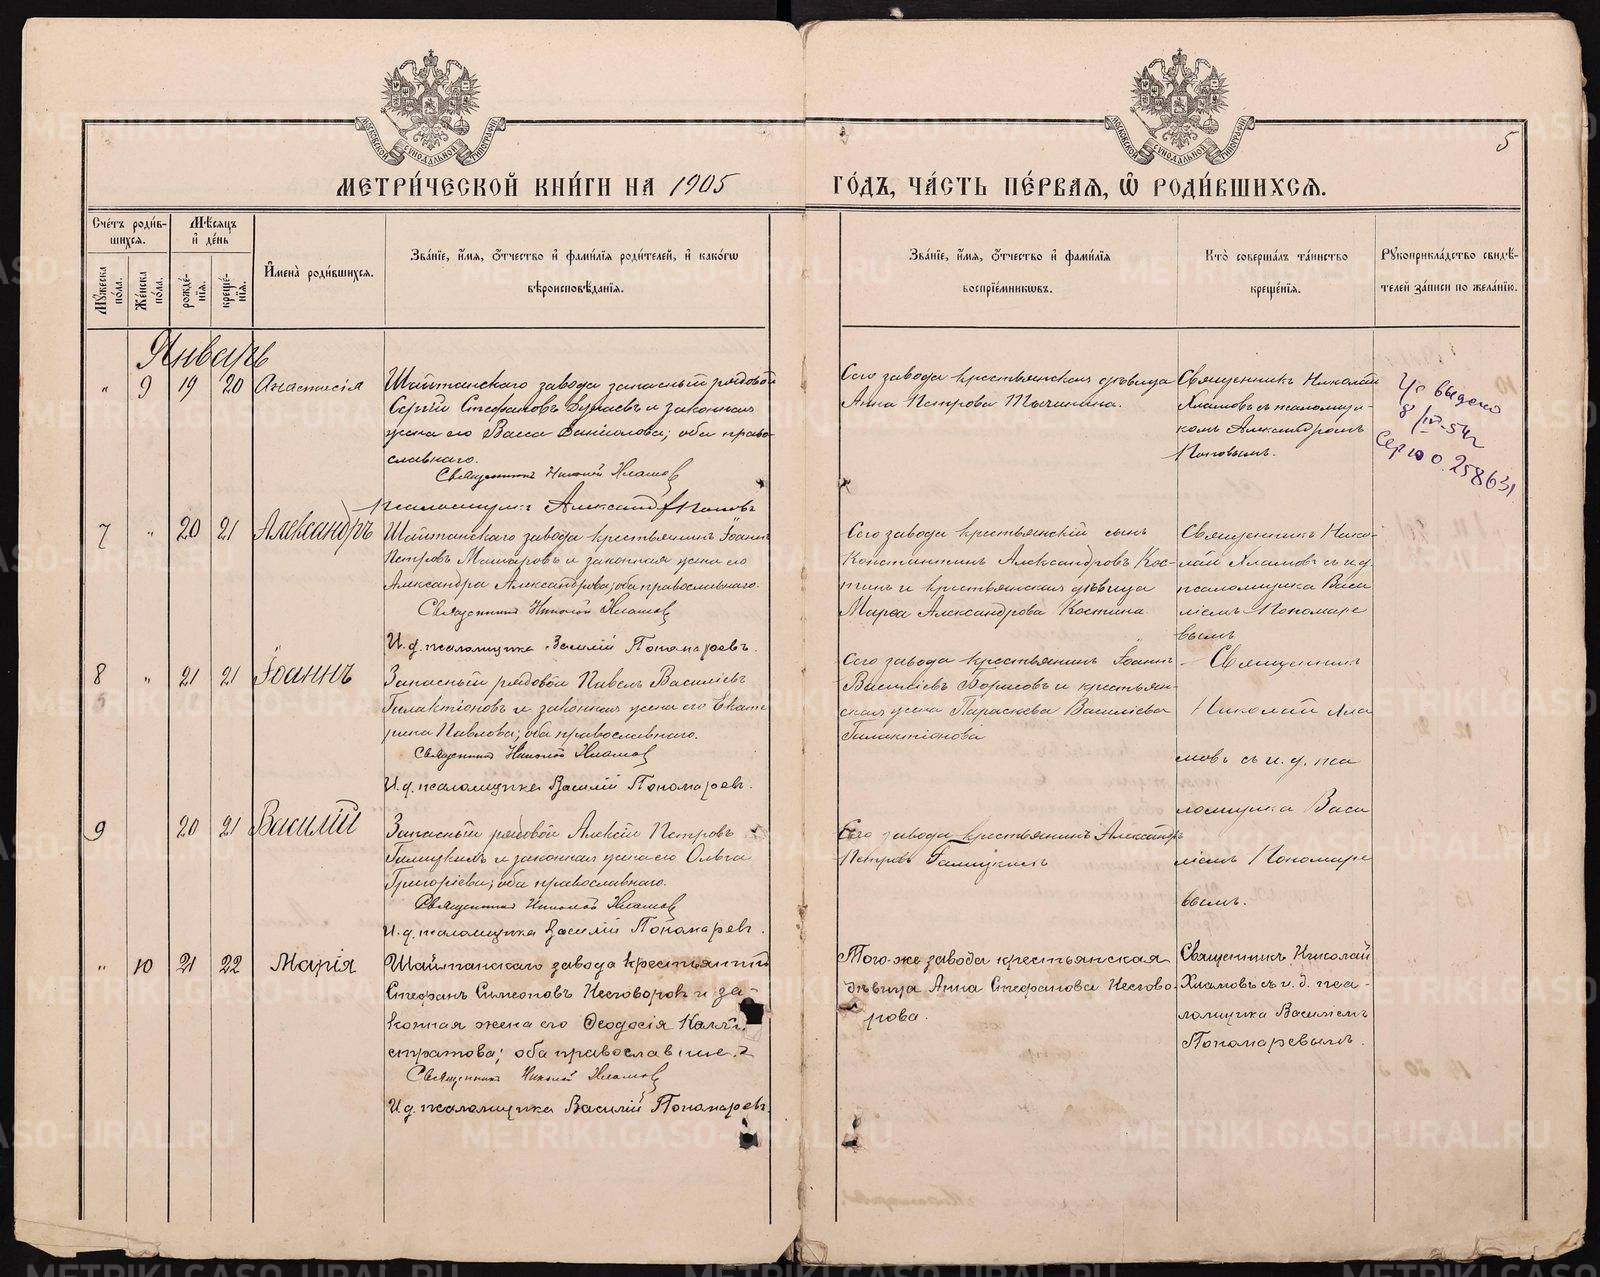 МОСКОВСКОЙ СУНОДАЛЬНОЙ ТИПОГРАФІИ
МОСКОВСКОЙ СУНОДАЛЬНОЙ ТИПОГРАФІИ
5
МЕТРИ́ЧЕСКОЙ КНИ́ГИ НА 1905
ГО́ДЪ, ЧА́СТЬ ПЕ́РВАЯ, Ѽ РОДИ́ВШИХСЯ.
Счётъ роди́в-
шихся.
Мѣ́сяцъ
и де́нь
Мꙋ́жеска
по́ла.
Же́нска
по́ла.
рожде́-
нїя.
креще́-
нїя.
Имена̀ роди́вшихся.
Зва́нїе, и́мя, о́тчество и фами́лїя роди́телей, и како́гѡ
вѣроисповѣ́данїя.
Зва́нїе, и́мя, о́тчество и фами́лїя
воспрїе́мникѡвъ.
Кто̀ соверша́лъ та́инство
креще́нїя.
Рꙋкоприкла́дство свидѣ́-
телей за́писи по жела́нїю.
Январь
" 9 19 20 Анастасія
Шайтанскаго завода запасный рядовой
Сергій Стефановъ и законная
жена его Васса Даніилова; оба право-
славнаго.
Священникъ Николай Хламовъ
псаломщикъ Александръ Поповъ
Сего завода крестьянская дѣвица
Анна Петрова Тычинина.
Священникъ Николай
Хламовъ съ псаломщи-
комъ Александромъ
Поповымъ.
выдано
8/IV-54г
Серю о. 258631
7 " 20 21 Александръ
Шайтанскаго завода крестьянинъ Іоаннъ
Петровъ Макаровъ и законная жена его
Александра Александрова; оба православнаго.
Священникъ Николай Хламовъ
И. д. псаломщика Василій Пономаревъ.
Сего завода крестьянскій сынъ
Константинъ Александровъ Кос-
тинъ и крестьянская дѣвица
Марѳа Александрова Костина
Священникъ Нико-
лай Хламовъ съ и. д.
псаломщика Васи
ліемъ Пономаре
вымъ
8 " 21 21 Іоаннъ
Запасный рядовой Павелъ Василіевъ
Галактіоновъ и законная жена его Екате
рина Павлова; оба православнаго.
Священникъ Николай Хламовъ
И. д. псаломщика Василій Пономаревъ.
Сего завода крестьянинъ Іоаннъ
Василіевъ Борисовъ и крестьян-
ская жена Параскева Василіева
Галактіонова
Священникъ
Николай Хла
мовъ съ и. д. пса
ломщика Васи
ліемъ Пономаре
вымъ.
9 20 21 Василій
Запасный рядовой Алексій Петровъ
Галицкихъ и законная жена его Ольга
Григоріева; оба православнаго.
Священникъ Николай Хламовъ
И. д. псаломщика Василій Пономаревъ.
Сего завода крестьянинъ Александръ
Петровъ Галицкихъ
" 10 21 22 Марія
Шайтанскаго завода крестьянинъ
Стефанъ Симеоновъ Несговоровъ и за-
конная жена его Ѳеодосія Калли
стратова; оба православные.
Священникъ Николай Хламовъ
И. д. псаломщика Василій Пономаревъ.
Того-же завода крестьянская
дѣвица Анна Стефанова Несгово-
рова.
Священникъ Николай
Хламовъ съ и. д. пса-
ломщика Василіемъ
Пономаревымъ.
METRIKI.GASO-URAL.RU